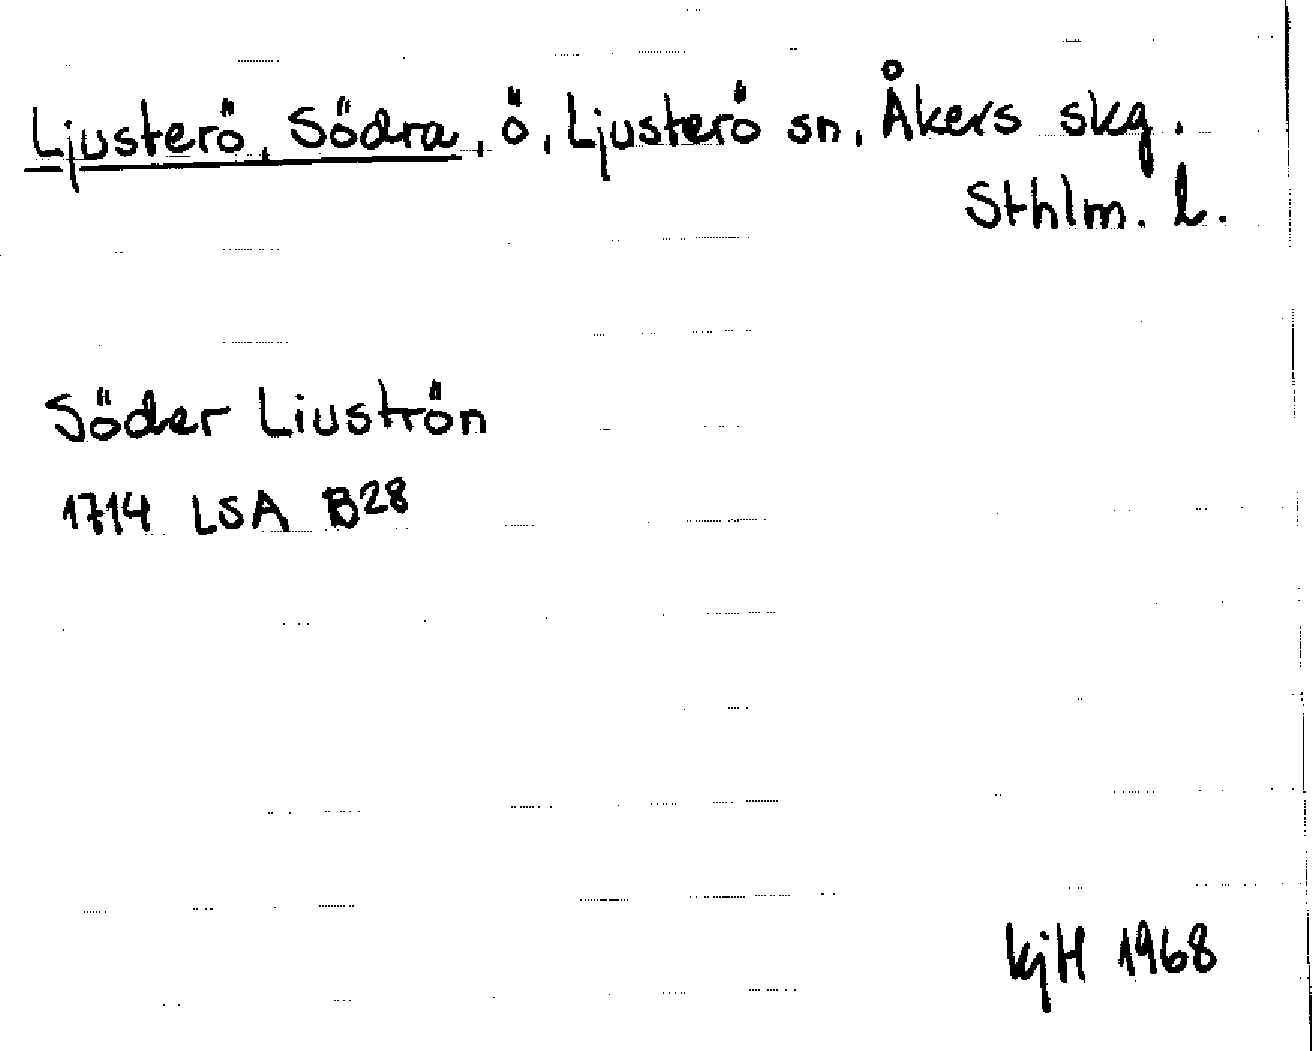 Ljusterö, Södra, ö, Ljusterö sn, Åkers skg.
Sthlm. l.
Söder Liuströn
1714 LSA B28
KjH 1968